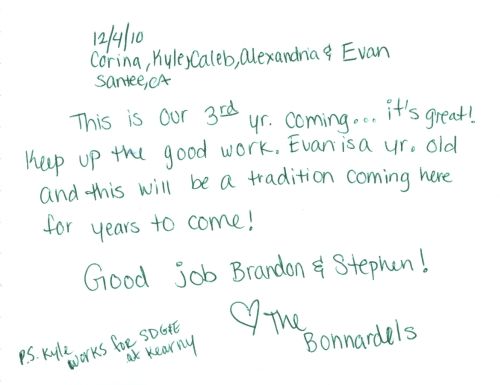 12/4/10
Corina, Kyle, Caleb, Alexandria & Evan
Santee, CA
This is our 3rd yr. coming... it's great!
Keep up the good work. Evan is a yr. old
and this will be a tradition coming here
for years to come!
Good job Brandon & Stephen!
♡ The
Bonnardels
P.S. Kyle
works for SDG&E
at Kearny